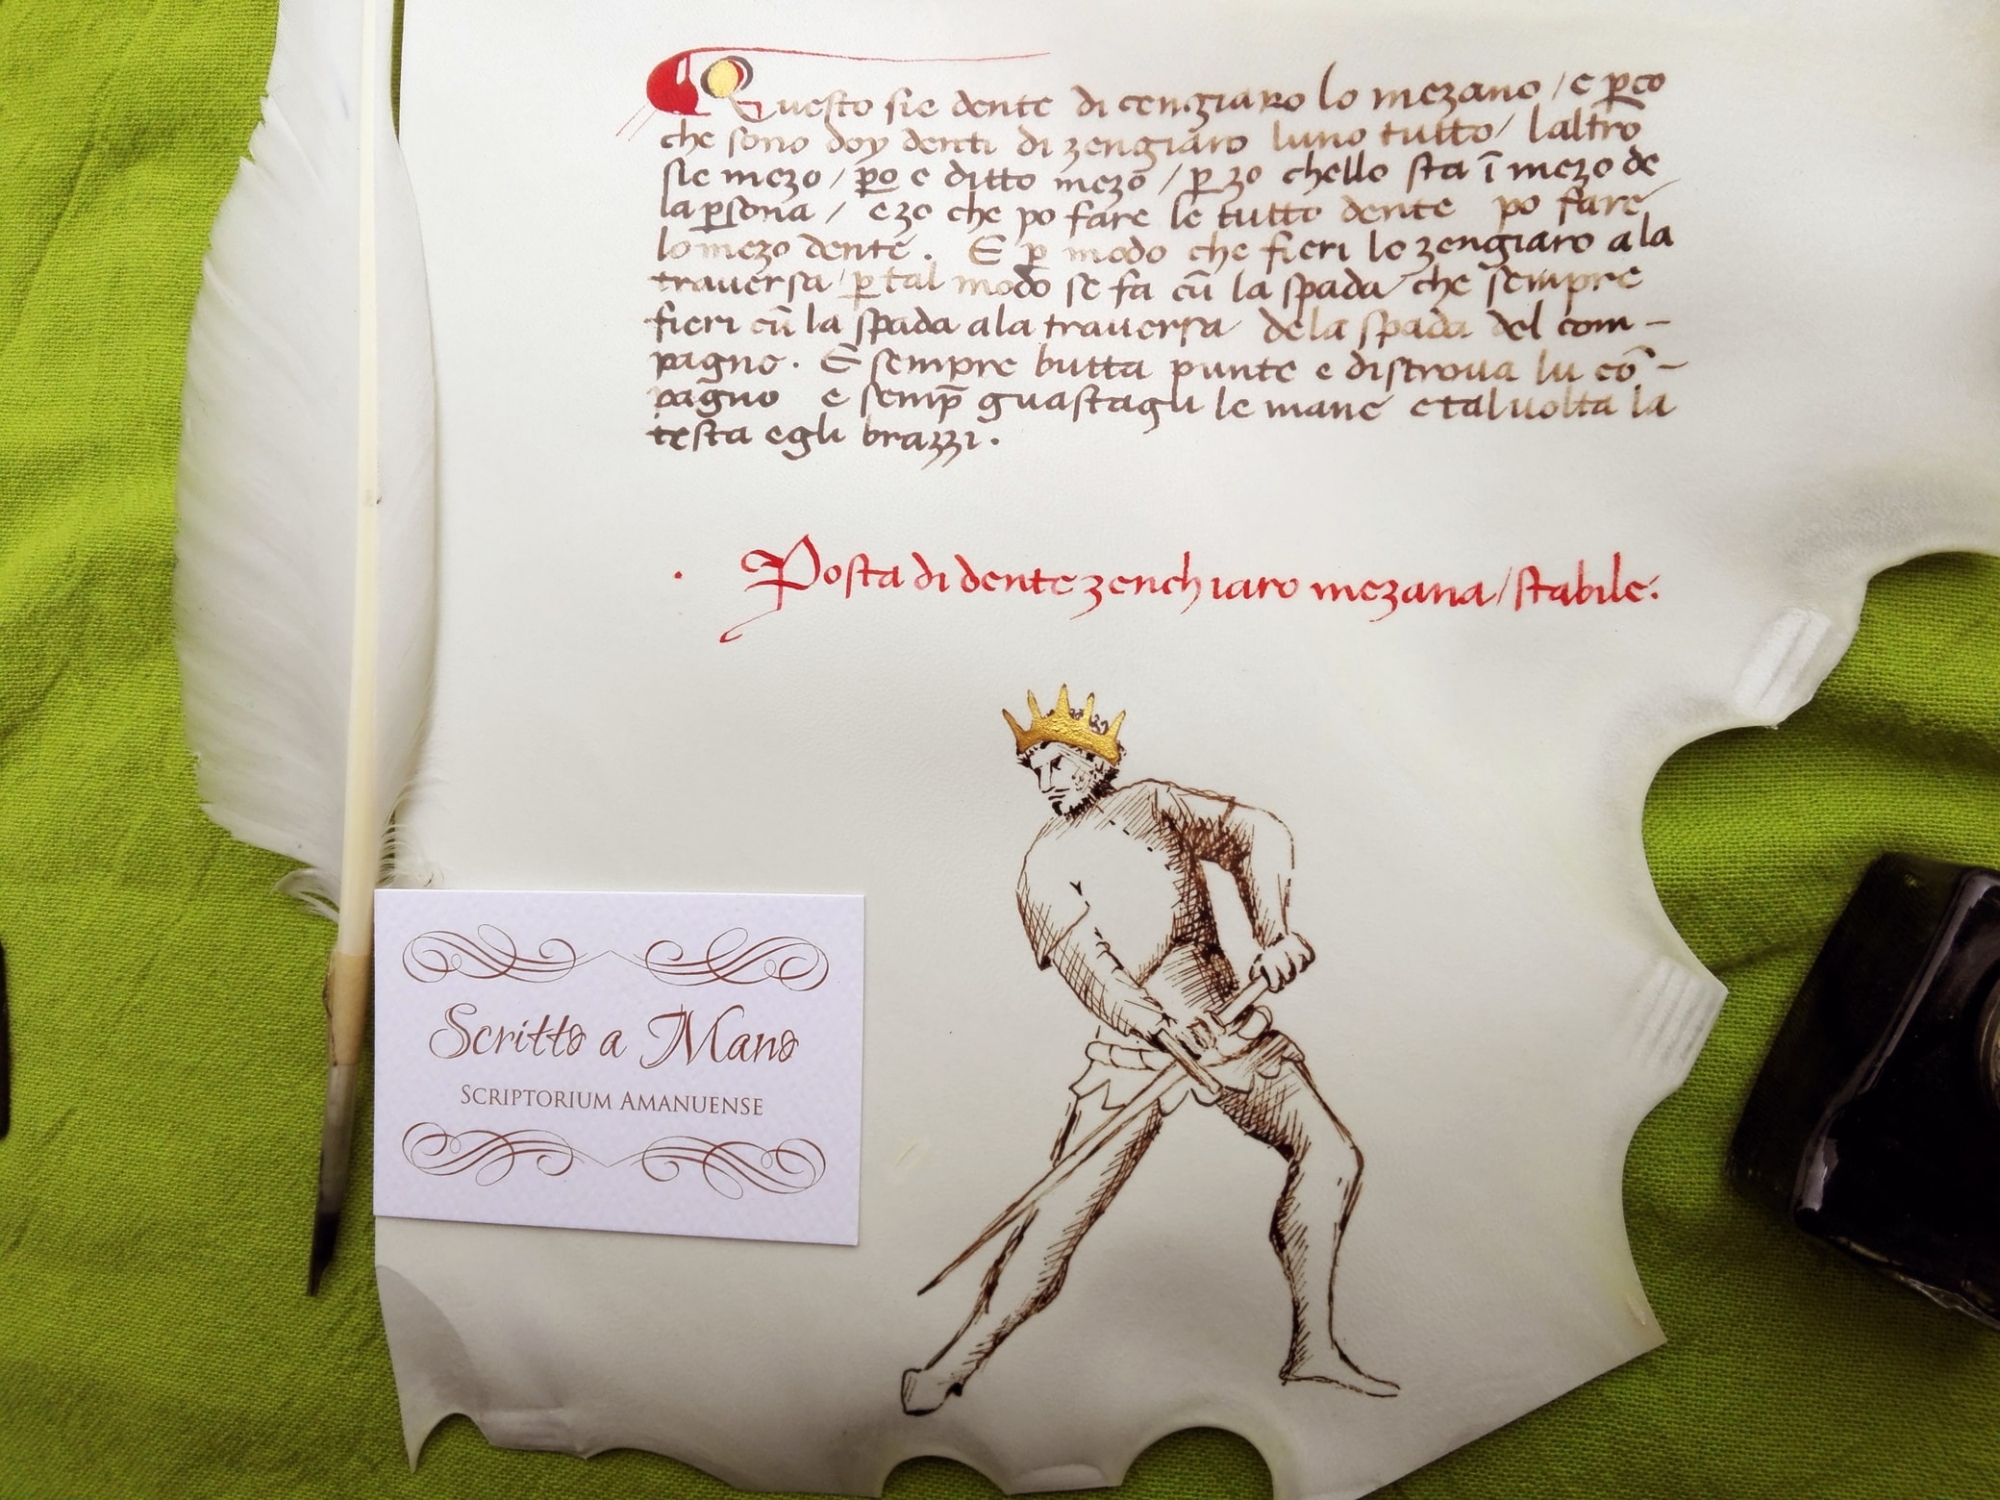 Questo sie dente di cengiaro lo mezano / e ꝑco
che sono doy denti di zengiaro luno tutto / laltro
sie mezo / ꝑo e ditto mezo / ꝑ zo chello sta ī mezo de
la ꝑsona / ezo che po fare lo tutto dente po fare
lo mezo dente. E ꝑ modo che fieri lo zengiaro a la
trauersa / ꝑ tal modo se fa cū la spada che sempre
fieri cū la spada a la trauersa dela spada del com-
pagno. E sempre butta punte e discroua lu cō-
pagno e semp̄ guastagli le mane e taluolta la
testa egli brazzi.
. Posta di dente zenchiaro mezana / stabile.
Scritto a Mano
SCRIPTORIUM AMANUENSE